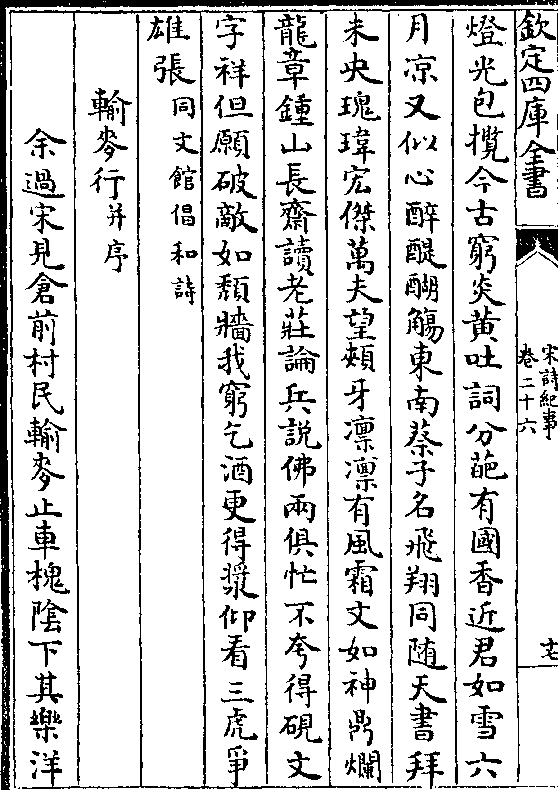 欽定四庫全書
宋詩紀事
卷二十六
燈光包攬今古窮炎黄吐詞分葩有國香近君如雪六
月凉又似心醉醍醐觴東南蔡子名飛翔同随天書拜
未央瑰瑋宏傑萬夫望頰牙凛凛有風霜文如神鼎爛
龍章鍾山長齋讀老莊論兵説佛兩俱忙不夸得硯文
字祥但願破敵如頹牆我窮乞酒更得漿仰看三虎爭
雄張同文館倡和詩
輸麥行并序
余過宋見倉前村民輸麥止車槐陰下其樂洋